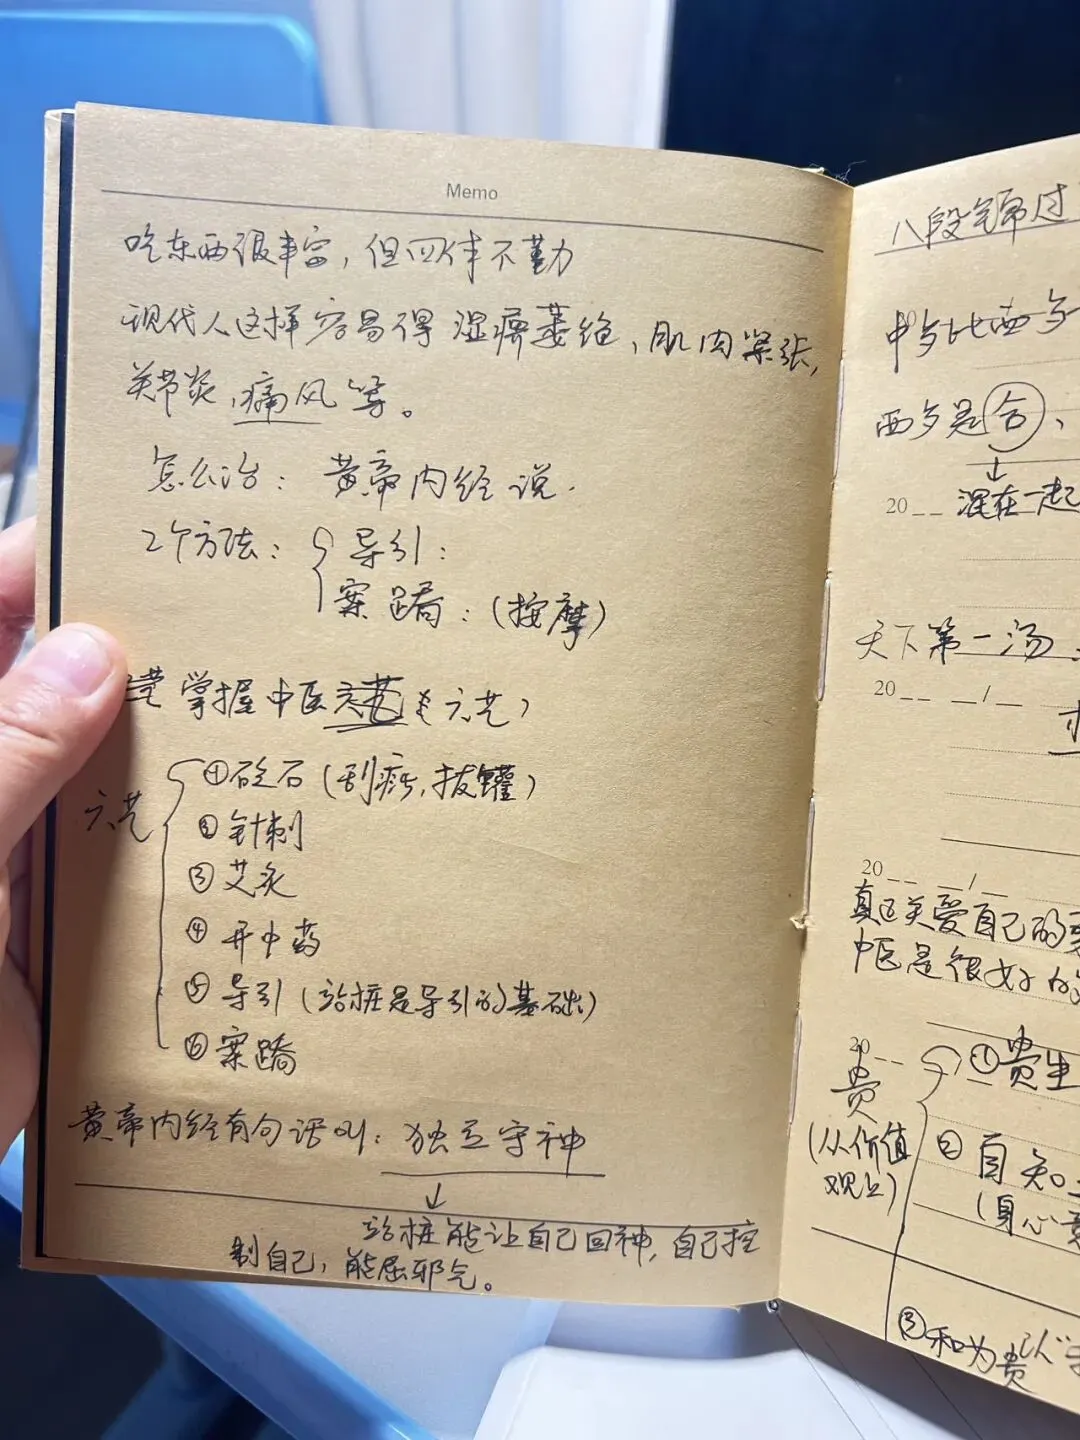 Memo
吃东西很丰富，但四体不勤
现代人这样容易得湿痹萎绝、肌肉紧张，
关节炎、痛风等。
怎么治：黄帝内经说．
2个方法：导引：
案蹻：(按摩)
掌握中医六艺（六艺）
六艺
①砭石（刮痧，拔罐）
②针刺
③艾灸
④开中药
⑤导引（站桩是导引的基础）
⑥案蹻
黄帝内经有句话叫：独立守神
↓
站桩能让自己回神，自己控
制自己，能屈邪气。
八段锦过
中医比西医
西医是合、
↓
20__ 混在一起
天下第一汤
20__ __/__
20__ __/__
真正关爱自己的
中医是很好的
20__
贵
(从价值
观上)
①贵生
②自知
(身心
③和为贵 以